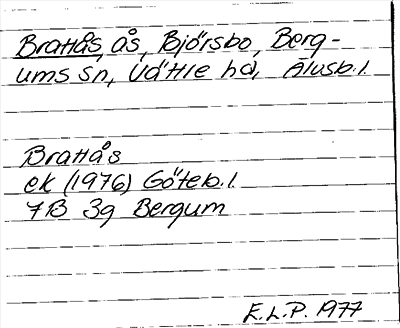 Brattås, ås, Björsbo, Berg-
ums sn, Vättle hd, Älvsb.l.
Brattås
ek (1976) Göteb.l.
7B 3g Bergum
E.L.P. 1977